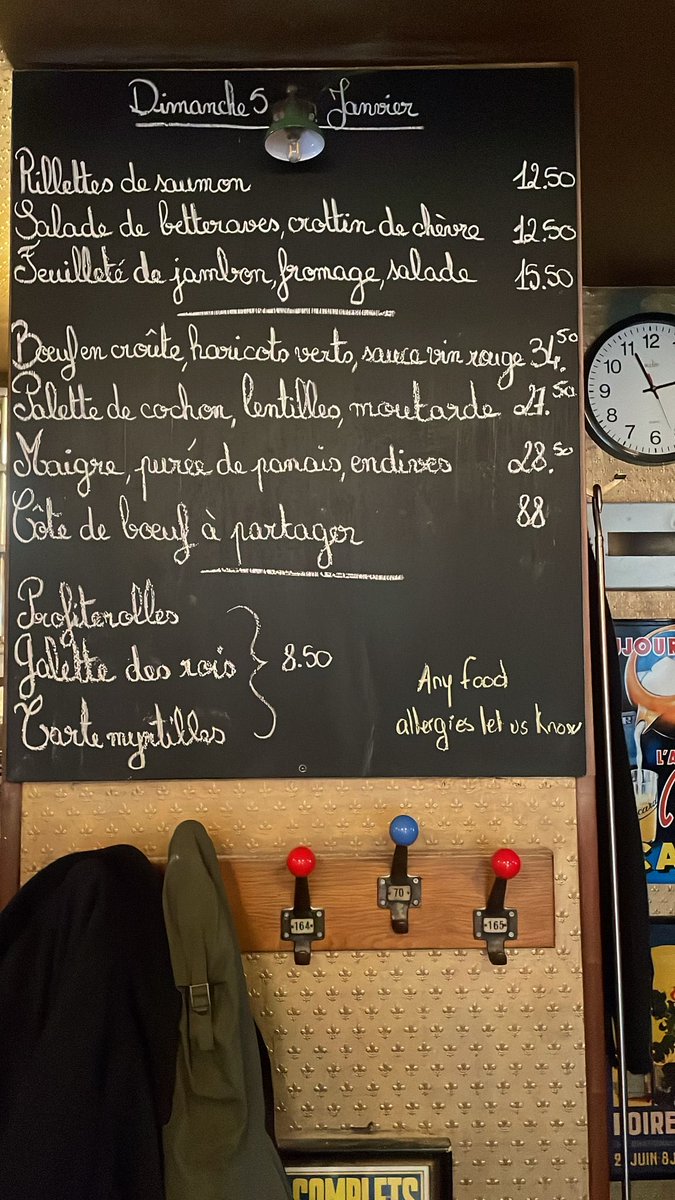 Dimanche 5 Janvier
Rillettes de saumon 12.50
Salade de betteraves, crottin de chèvre 12.50
Feuilleté de jambon, fromage, salade 15.50
Bœuf en croûte, haricots verts, sauce vin rouge 34.50
Palette de cochon, lentilles, moutarde 27.50
Maigre, purée de panais, endives 28.50
Côte de bœuf à partager 88
Profiterolles
Galette des rois 8.50
Tarte myrtilles
Any food
allergies let us know
11 12
10
9
8
7 6
UJOUR
L'A
CA
164 70 165
OIRE
2 JUIN 8J
COMPLETS